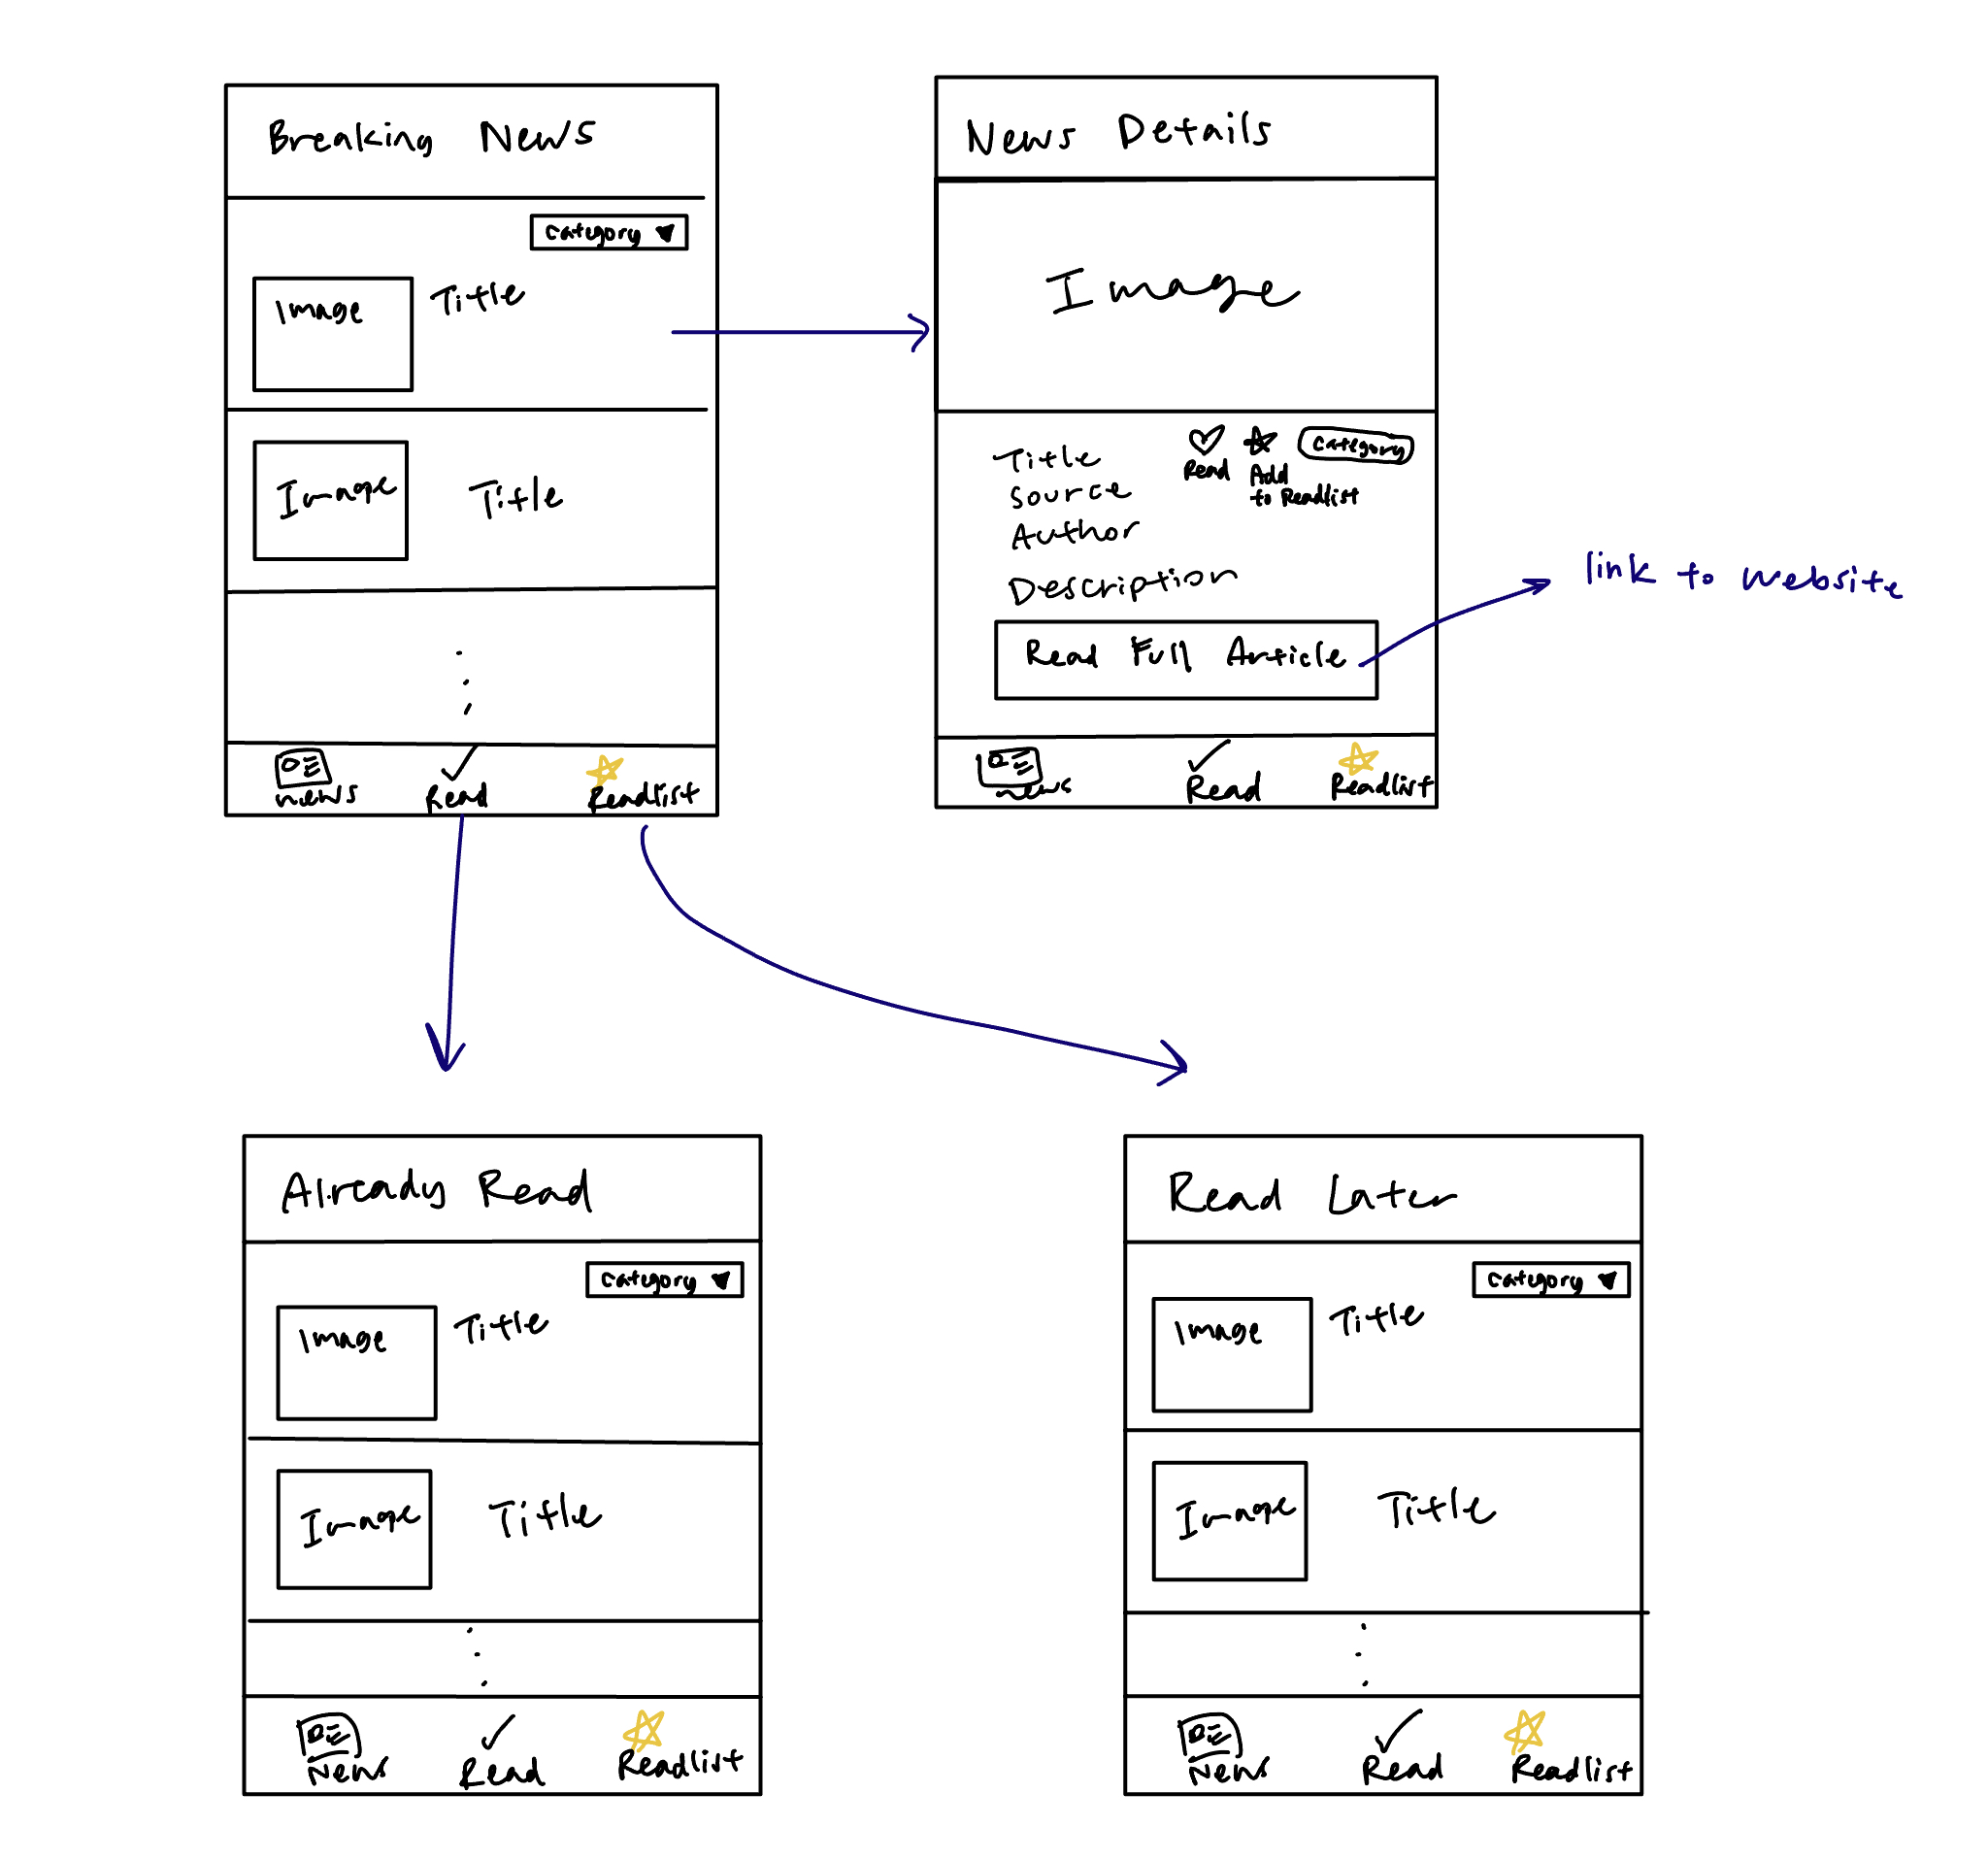 Breaking News
category
Image
Title
Image
Title
news
Read
Readlist
News Details
Image
Title
Read
Add
to Readlist
category
Source
Author
Description
Read Full Article
link to website
news
Read
Readlist
Already Read
category
Image
Title
Image
Title
News
Read
Readlist
Read Later
category
Image
Title
Image
Title
News
Read
Readlist